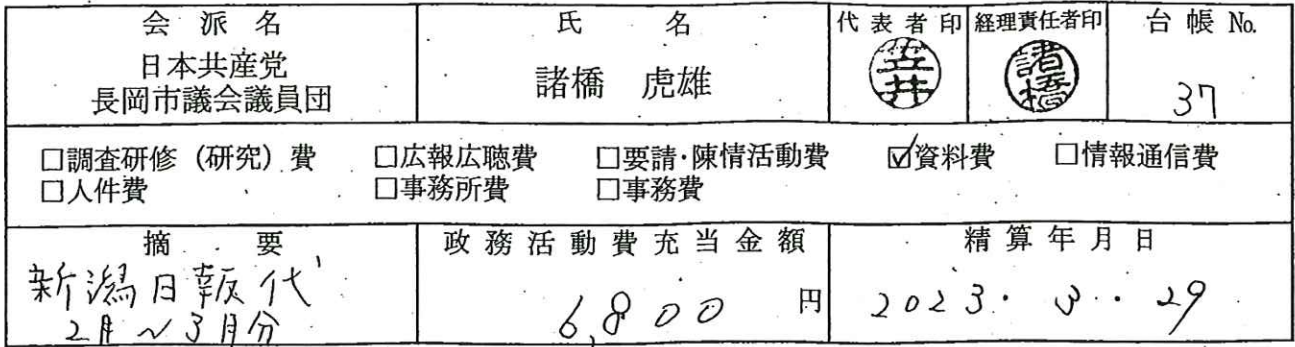 会派名 氏名 代表者印 経理責任者印 台帳 No.
日本共産党
長岡市議会議員団
諸橋 虎雄
笠井
諸橋
37
□調査研修（研究）費 □広報広聴費 □要請・陳情活動費 ☑資料費 □情報通信費
□人件費 □事務所費 □事務費
摘要 政務活動費充当金額 精算年月日
新潟日報代
2月～3月分
6,800 円
2023. 3. 29